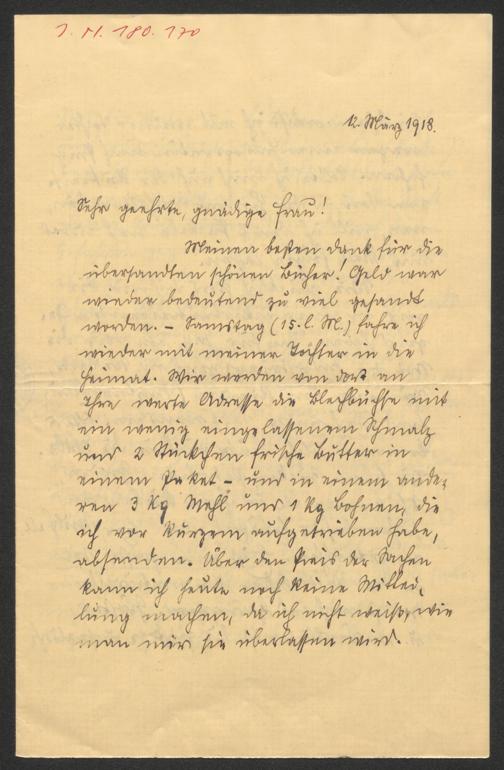 J. N. 180.170
12. März 1918.
Sehr geehrte, gnädige Frau!
Meinen besten Dank für die
übersandten schönen Bücher! Geld war
wieder bedeutend zu viel gesandt
worden. – Samstag (15. l. M.) fahre ich
wieder mit meiner Tochter in die
Heimat. Wir werden von dort an
Ihre werte Adresse die Blechbüchse mit
ein wenig eingelassenem Schmalz
und 2 Stückchen frische Butter in
einem Paket – und in einem ande-
ren 3 kg Mehl und 1 kg Bohnen, die
ich vor kurzem aufgetrieben habe,
absenden. Über den Preis der Sachen
kann ich heute noch keine Mittei-
lung machen, da ich nicht weiß, wie
man mir sie überlassen wird.